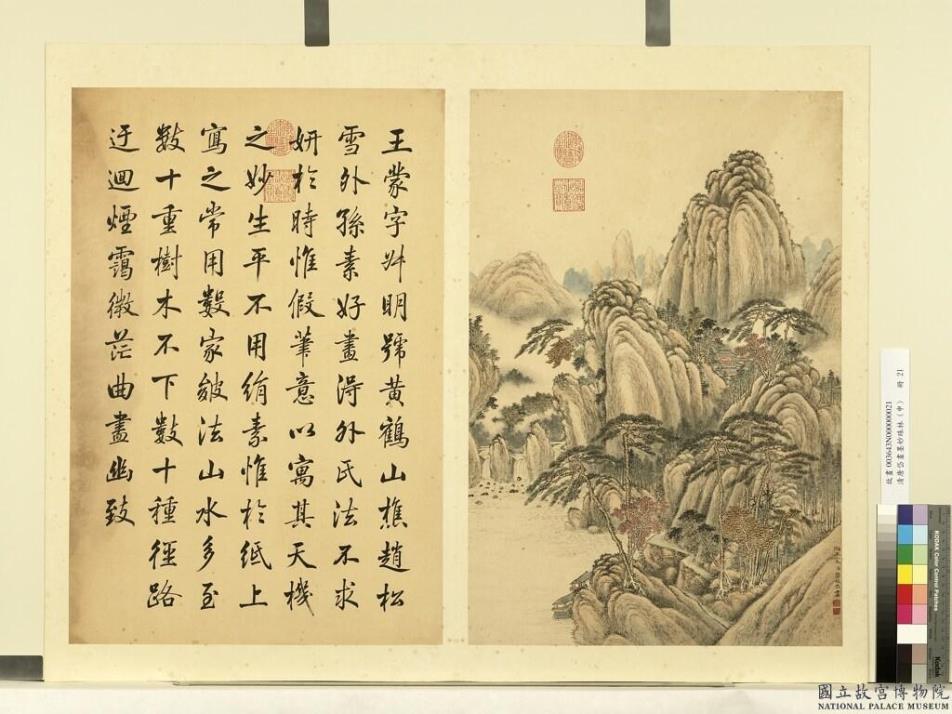 王蒙字叔明號黃鶴山樵趙松
雪外孫素好畫得外氏法不求
妍於時惟假筆意以寓其天機
之妙生平不用絹素惟於紙上
寫之常用數家皴法山水多至
數十重樹木不下數十種徑路
迂迴煙靄微茫曲盡幽致
故畫 003643N000000021
清唐岱畫墨妙珠林(申) 冊 21
KODAK Color Control Patches
Kodak
國立故宮博物院
NATIONAL PALACE MUSEUM